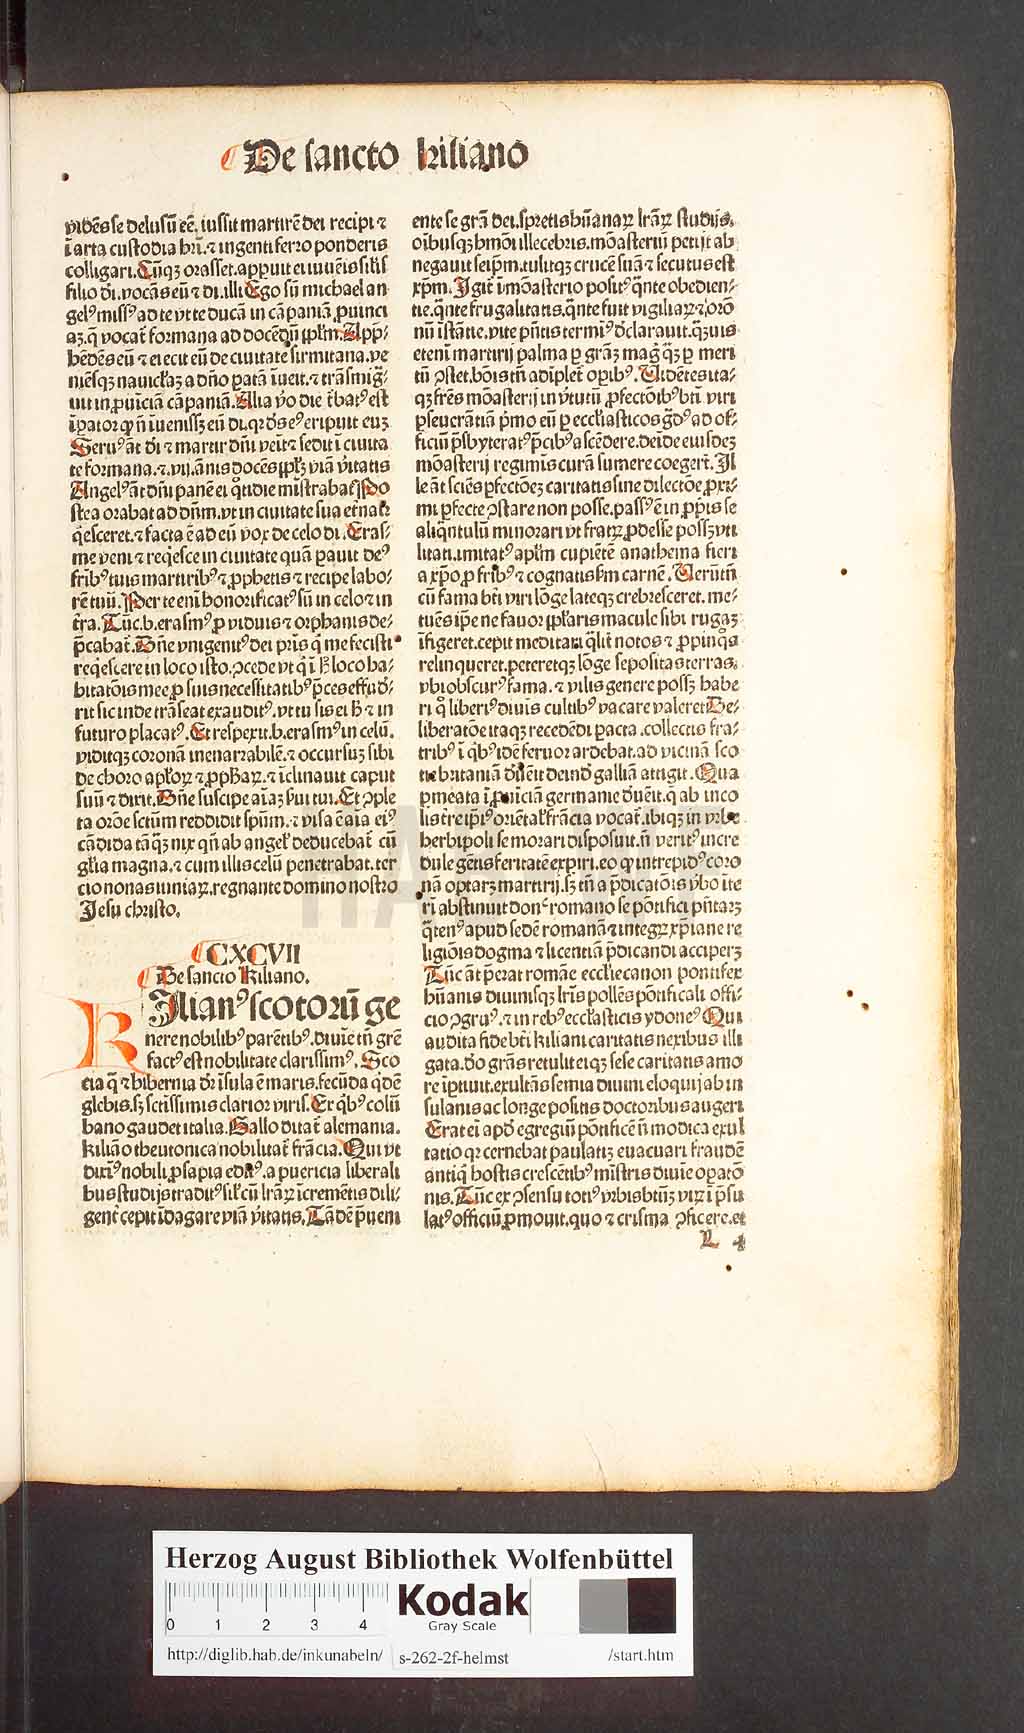 De sancto kiliano
videns se delusū eē, iussit martirē dei recipi ⁊
ī arta custodia hrī.⁊ ingenti ferro ponderis
colligari. Cūqꝫ orasset. apꝑuit ei iuuēis sil̄is
filio dī. vocās eū ⁊ di. illi Ego sū michael an
gelꝰ missꝰ ad te vt te ducā in cāpaniā ꝓuinci
aꝫ. q̄ vocat̄ formana ad docēdū ppl̄m. App̄-
hēdēs eū ⁊ eiecit eū de ciuitate sirmitana. ve
niēsqꝫ nauicl̄aꝫ a dn̄o ꝑatā īueīt.⁊ trāsmig̃-
uit in ꝓuīciā cāpaniā. Alia vo die t̄batꝰ est
īꝑator qꝛ n̄ īuenissꝫ eū di. qꝛ dsꝰ eꝰ eripuit euꝫ
Seruꝰ āt dī ⁊ martir dn̄i veīt ⁊ sedit ī ciuita
te formana.⁊.vij. ānis docēs ppl̄ꝫ viā v̄itatis
Angelꝰ āt dn̄i panē ei q̊tidie mīstrabat. Po
stea orabat ad dn̄m. vt in ciuitate sua et̄naꝉr
q̄esceret.⁊ facta ē ad eū vox de celo di. Eras-
me veni ⁊ req̄esce in ciuitate quā pauit deꝰ
fr̄ibꝰ tuis martiribꝰ ⁊ ꝓphetis ⁊ recipe labo-
rē tuū. Per te enī honorificatꝰ sū in celo ⁊ in
t̄ra. Tūc.b.erasmꝰ ꝓ viduis ⁊ orphanis de-
p̄cabat̄. Dn̄e vnigenitꝰ dei pr̄is q̄ me fecisti
req̄escere in loco isto. ↄcede vt q̄ ī h̄ loco ha-
bitatōis mee ꝓ suis necessitatibꝰ p̄ces effud̄-
rit sic inde trāseat exauditꝰ. vt tu sis ei h̄ ⁊ in
futuro placatꝰ. Et respexit.b.erasmꝰ in celū.
viditqꝫ coronā inenarabilē.⁊ occursuꝫ sibi
de choro apl̄oꝝ ⁊ ꝓphaꝝ.⁊ īclinauit caput
suū ⁊ dixit. Dn̄e suscipe aīaꝫ ẜui tui. Et ↄple
ta orōe sctūm reddidit spūm.⁊ visa ē aīa eiꝰ
cādida tāqꝫ nix quā ab angel̄ deducebat̄ cū
gl̄ia magna.⁊ cum illis celū penetrabat. ter
cio nonas iuniaꝝ. regnante domino nostro
Jesu christo.
CXCVII
De sancto Kiliano.
KJlianꝰ scotorū ge
nere nobilibꝰ parētibꝰ. diuīe tn̄ grē
factꝰ est nobilitate clarissimꝰ. Sco
cia q̄ ⁊ hibernia dr̄ īsula ē maris. fecūda q̄dē
glebis. sꝫ sctīssimis clarior viris. Ex q̄bꝰ colū
bano gaudet italia. Gallo ditat̄ alemania.
kiliāo theutonica nobilitat̄ frācia. Qui vt
diximꝰ nobili ꝓsapia editꝰ. a puericia liberali
bus studijs traditꝰ sil̄ cū lr̄aꝝ īcremētis dili-
gent̄ cepit īdagare viā v̄itatis. Tādē p̄ueni
ente se grā dei. spretis hūanaꝝ lr̄aꝝ studijs.
oībusqꝫ hm̄ōi illecebris. mōasteriū petijt ab
negauit seip̄m. tulitqꝫ crucē suā ⁊ secutus est
xp̄m. Jgit̄ ī mōasterio positꝰ q̄nte obedien-
tie. q̄nte frugalitatis. q̄nte fuit vigiliaꝝ ⁊ orō
nū īstātie. vite p̄ntis termīꝰ dclarauit. q̄ꝫuis
etenī martirij palma ꝑ grāꝫ mag̃ q̄ꝫ ꝑ meri
tū ↄstet. bōis tn̄ adīplet̄ oꝑibꝰ. Vidētes ita-
qꝫ fr̄es mōasterij in v̄tutū ꝓfectōibꝰ bt̄i viri
ꝑseuerātiā p̄mo eū ꝑ eccl̄iasticos g̃dꝰ ad of-
ficiū p̄sbyteratꝰ p̄cibꝰ ascēdere. deīde eiusdeꝫ
mōasterij regimis curā sumere coegert̄. Jl
le āt sciēs ꝑfectōeꝫ caritatis sine dilectōe ꝓxi-
mi ꝑfecte ↄstare non posse. passꝰ ē in ꝓp̄is se
aliq̄ntulū minorari vt fratꝝ ꝓdesse possꝫ vti
litati. imitatꝰ apl̄m cupiētē anathema fieri
a xp̄o ꝓ fr̄ibꝰ ⁊ cognatis ẜm carnē. Verūtn̄
cū fama bt̄i viri lōge lateqꝫ crebresceret. me-
tuēs ip̄e ne fauor ppl̄aris macule sibi rugaꝫ
īfigeret. cepit meditari q̄lit̄ notos ⁊ ꝓpinq̄s
relinqueret. peteretqꝫ lōge sepositas terras.
vbi obscurꝰ fama.⁊ vilis genere possꝫ habe
ri q̄ liberiꝰ diuis cultibꝰ vacare valeret. De-
liberatōe itaqꝫ recedēdi ꝑacta. collectis fra-
tribꝰ ī q̄bꝰ idē feruor ardebat. ad vicinā sco
tie britaniā dꝰeīt deind̄ galliā attigit. Qua
ꝑmeata ī ꝓuīciam germanie dꝰēit. q̄ ab inco
lis tre ip̄iꝰ oriētal̄ frācia vocat̄. ibiqꝫ in vrbe
herbipoli se morari disposuit. n̄ veritꝰ incre
dule gētis feritatē expiri. eo qꝰ intrepidꝰ coro
nā optarꝫ martirij. sꝫ tn̄ a p̄dicatōis ꝟbo īte
rī abstinuit donᶜ romano se pōtifici p̄ntarꝫ
q̄tenꝰ apud sedē romanā ⁊ integrꝝ xp̄iane re
ligiōis dogma ⁊ licentiā p̄dicandi acciperꝫ
Tūc āt p̄erat romāe eccl̄ie canon pontifex
hūanis diuinisqꝫ lr̄is pollēs pōtificali offi-
cio ↄgruꝰ.⁊ in rebꝰ eccl̄asticis ydoneꝰ. Qui
audita fide bt̄i kiliani caritatis nexibus illi
gata. do grās retulit eiqꝫ sese caritatis amo
re īpꝉiuit. exultās semīa diuini eloquij ab in
sulanis ac longe positis doctoribus augeri
Erat eī apd̄ egregiū pōtificē n̄ modica exul
tatio qꝛ cernebat paulatiꝫ euacuari fraudē
antiq̄ hostis crescētibꝰ mīstris diuīe oꝑatō
nis. Tūc ex ↄsensu totiꝰ vrbis btm̄ꝫ viꝝ ī p̄su
latꝰ officiū ꝓmouit. quo ⁊ crisma ↄficere. et
L 4
HAB-WF
Herzog August Bibliothek Wolfenbüttel
0 1 2 3 4
Kodak
Gray Scale
http://diglib.hab.de/inkunabeln/ s-262-2f-helmst /start.htm